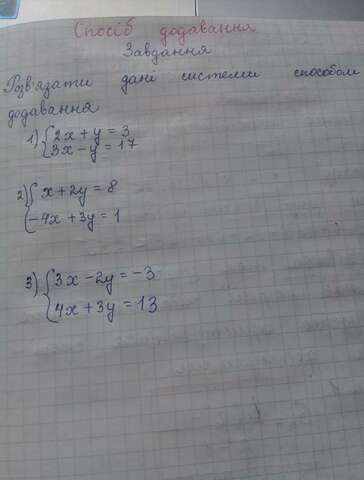 Спосіб додавання
Завдання
Розв'язати дані системи способом
додавання
1) { 2x + y = 3
3x - y = 17
2) { x + 2y = 8
-4x + 3y = 1
3) { 3x - 2y = -3
4x + 3y = 13